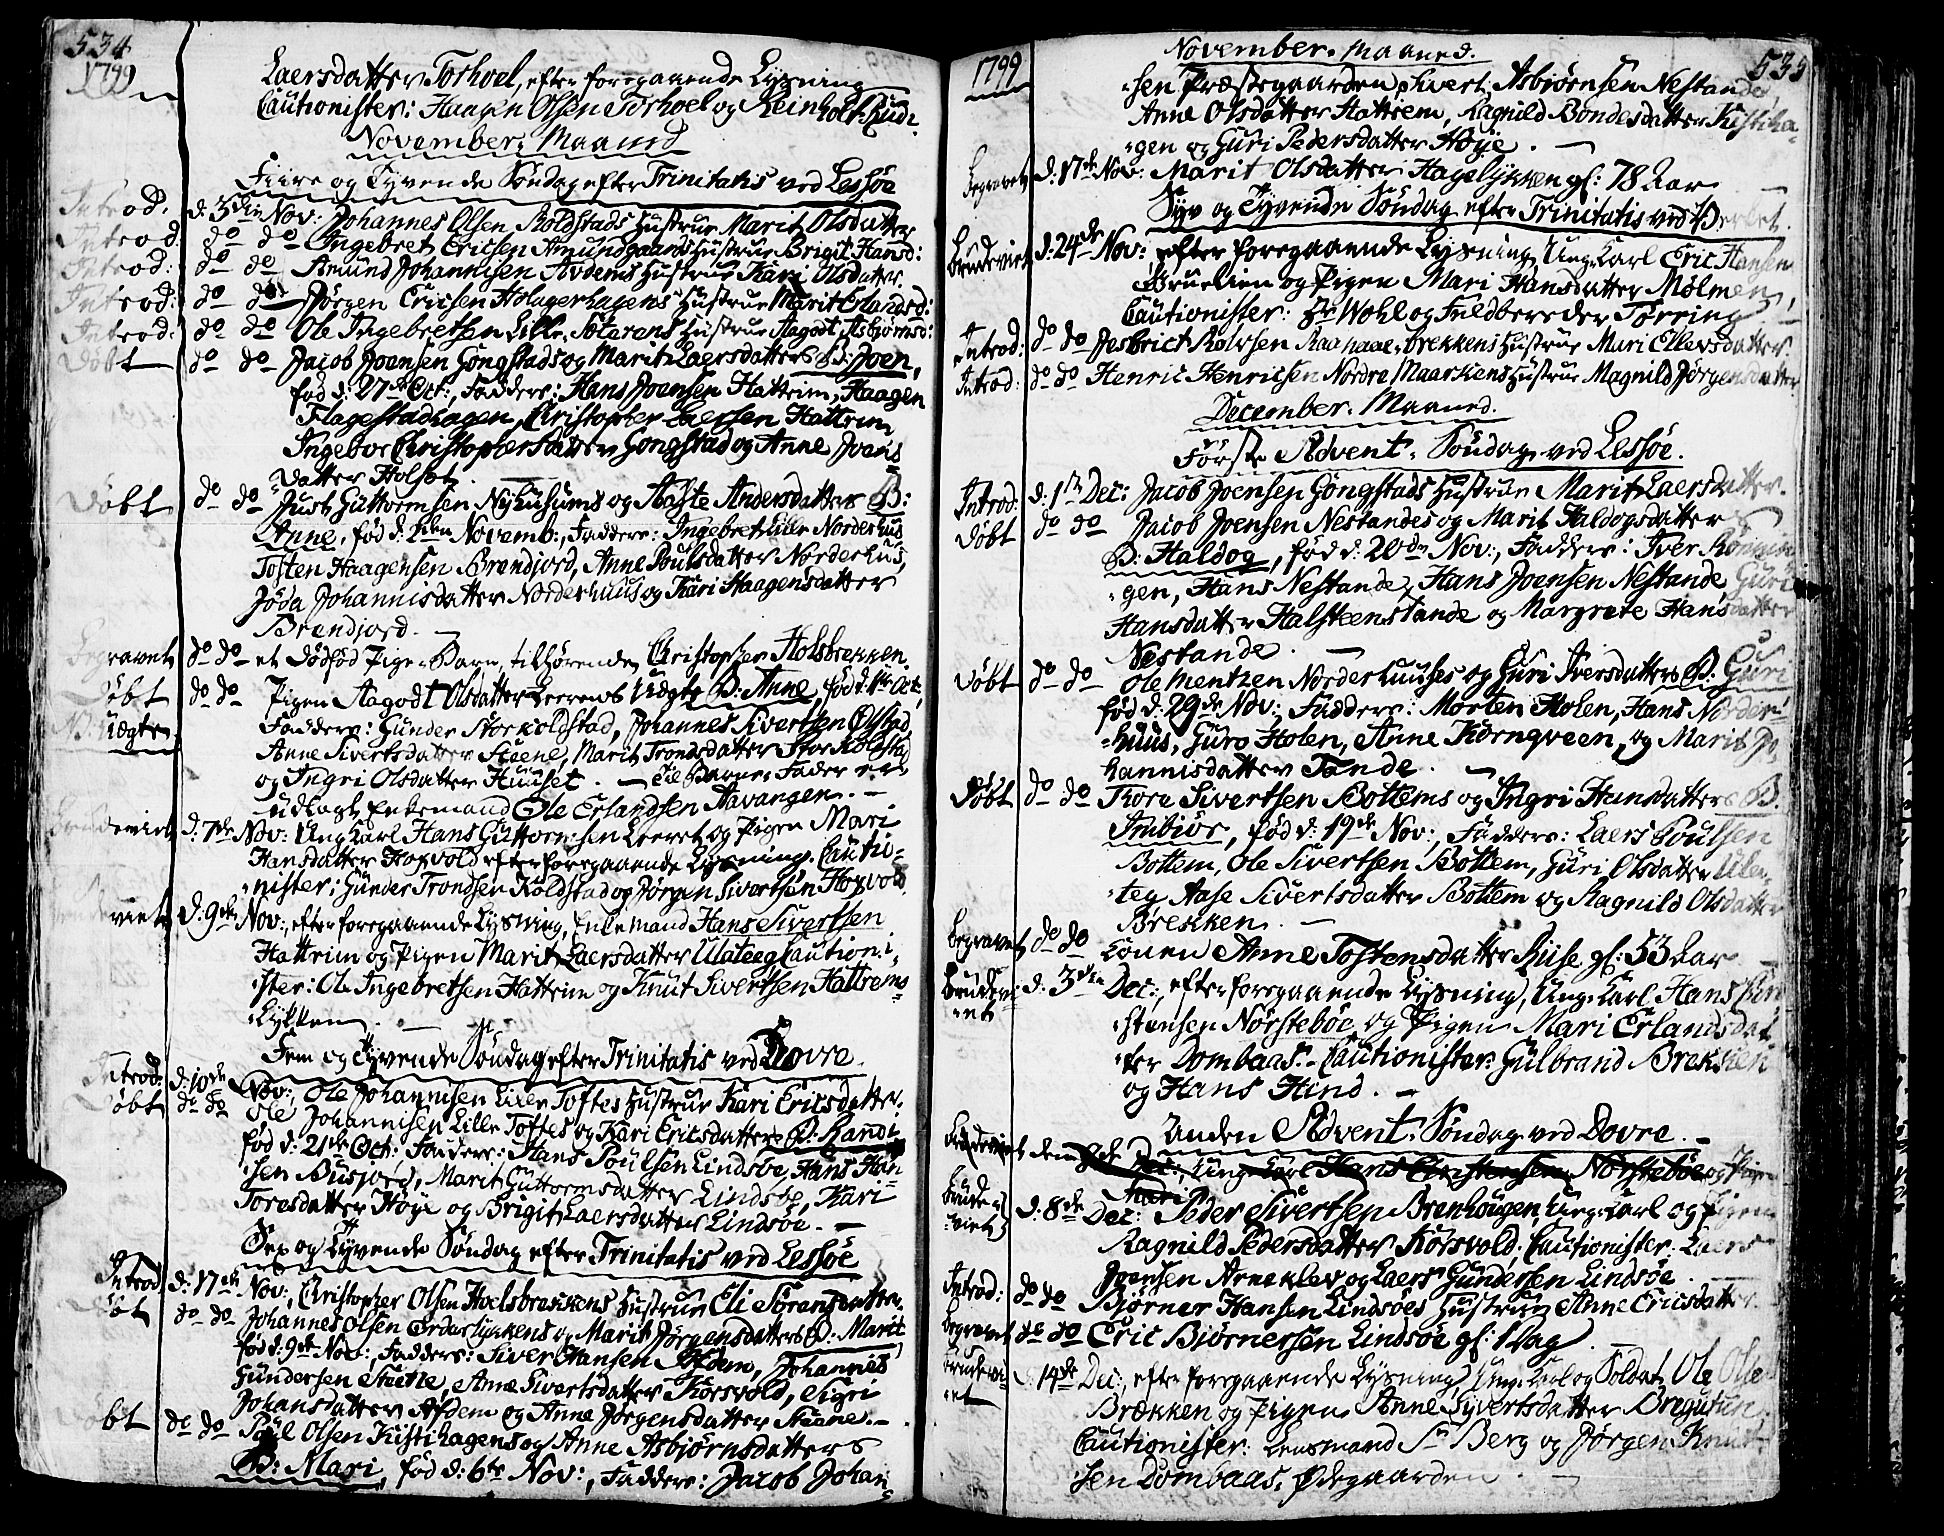 534
1799
Laersdatter Torhoel, efter foregaaende Lysning
Cautionister: Haagen Olsen Torhoel og Reinholt
November Maaned
Fiire og Tyvende Søndag efter Trinitatis ved Lessøe
Introd. d: 3die Nov: Johannes Olsen Koldstads Hustrue Marit Olsdatter
Introd do do Ingebret Ericsen Amundgaards Hustrue Brigit Hansd:
Introd: do do Amund Johannisen Avdems Hustrue Kari Olsdatter.
Introd: do do Jørgen Ericsen Holagerhagens Hustrue Marit Erlandsd:
Introd: do do Ole Ingebretsen Lille, Hustrue Aagodt Asbjørnsd:
Døbt do do Jacob Joensen Gongstads og Marit Laersdatters B: Joen,
fød d: 27de Oct:, Faddere: Hans Joensen Hattrim, Haagen
Flagestadhagen, Christopher Laersen Hattrim
Ingebor Christophersdatter Gongstad og Anne Joens
datter Holset.
Døbt do do Just Guttormsen Nyhuusums og Aaste Andersdatters B:
Anne, fød d: Novemb:, Faddere: Ingebret Lille Norderhuus
Tosten Haagensen Brendjord, Anne Poulsdatter Norderhuus,
Jøda Johannisdatter Norderhuus og Kari Haagensdatter
Brendjord.
Begravet do do et Dødfød Pige-Barn, tilhørende Christopher Holsbrekken.
Døbt do do Pigen Aagodt Olsdatter Leerens Uægte B: Anne, fød d: Oct:
B: Uægte Faddere: Gunder Storkoldstad, Johannes Sivertsen
Anne Sivertsdatter Steene, Marit Trondsdatter Stor Koldstad
og Ingri Olsdatter Huuset. - Til Barne-Fader er
udlagt Enkemand Ole Erlandsen Aavangen.
Brudeviet d: 7de Nov: Ung Karl Hans Guttormsen Leeret og Pigen Mari
Hansdatter Hoxvold efter foregaaende Lysning. Cautio-
nister: Gunder Trondsen Koldstad og Jørgen Sivertsen Hoxvold
viet d: 9de Nov:, efter foregaaende Lysning, Enkemand Hans Sivertsen
Hattrim og Pigen Marit Laersdatter Ulateeg Cautioni-
ster: Ole Ingebretsen Hattrim og Knut Sivertsen Hattrems-
Lykken.
Fem og Tyvende Søndag efter Trinitatis ved Dovre.
Introd: d: 10de Nov:, Ole Johannisen Lille Toftes Hustrue Kari Ericsdatter.
Døbt do do Ole Johannisen Lille Toftes og Kari Ericsdatters B: Randi
fød d: 21de Oct: Faddere: Hans Poulsen Lindsøe, Hans Han-
sen Busjord, Marit Guttormsdatter Lindsøe, Kari
Toresdatter Høye og Brigit Laersdatter Lindsøe.
Sex og Tyvende Søndag efter Trinitatis ved Lessøe
Introd d: 17de Nov:, Christopher Olsen Hoelsbrekkens Hustrue Eli Sørensdatter.
do do Johannes Olsen og Marit Jørgensdatters B: Marit
fød d: 9de Nov:, Faddere: Siver Hansen Afdem, Johannes
Gundersen Steene, Anne Sivertsdatter Korsvold, Sigri
Johansdatter Afdem og Anne Jørgensdatter Steene.
do do Poul Olsen Kistihagens og Anne Asbjørnsdatters
B: Mari, fød d: 6te Nov:, Faddere: Jacob Johan-
1799
November Maaned.
535
sen Præstegaarden, Sivert Asbiørnsen Nestande
Anne Olsdatter Hattrem, Ragnild Bondesdatter Kistiha-
gen og Guri Pedersdatter Høye.
Begravet d: 17de Nov: Marit Olsdatter Hagelykken gl: 78 Aar
Syv og Tyvende Søndag efter Trinitatis ved
Brudeviet d: 24de Nov: efter foregaaende Lysning Ung-Karl Eric Hansen
Bruelien og Pigen Mari Hansdatter Mølmen,
Cautionister: Hr Wohl og Feldbereder Tørring
Introd: do do Rolvsen Hustrue Mari Ellersdatter.
Introd: do do Henric Henricsen Nordre Hustrue Magnild Jørgensdatter
December Maaned.
Første Advent-Søndag ved Lessøe.
Introd: d: 1ste Dec: Jacob Joensen Gongstads Hustrue Marit Laersdatter.
Døbt do do Jacob Joensen Nestandes og Marit Haldogsdatters
B: Haldog, fød d: 20de Nov:, Faddere: Iver
gen, Hans Nestande, Hans Joensen Nestande Guri
Hansdatter Halsteenstande og Margrete Hansdatter
Nestande.
Døbt do do Ole Mentzen Norderhuuses og Guri Iversdatters B: Guri
fød d: 29de Nov:, Faddere: Morten Holen, Hans Norder-
huus, Guro Holen, Anne Korngveen, og Marit Jo-
hannisdatter Tande.
Døbt do do Tore Sivertsen Bottems og Ingri Hansdatters B.
Imbiør, fød d: 19de Nov:, Faddere: Laers Poulsen
Bottem, Ole Sivertsen Bottem, Guri Olsdatter Ula-
teg Aase Sivertsdatter Bottem og Ragnild Olsdatter
Brekken.
Begravet do do Konen Anne Tostensdatter Riise gl: 53 Aar
Brudevi-et d: 3die Dec:, efter foregaaende Lysning, Ung-Karl Hans
stensen Nørstebøe og Pigen Mari Erlandsdat-
ter Dombaas. Cautionister: Gulbrand Brekken
og Hans Hind.
Anden Advent-Søndag ved Dovre.
Ung-Karl Hans Christensen Nørstebøe og
Brude-viet d: 8de Dec: Peder Sivertsen Brenhougen, Ung-Karl og Pigen
Ragnild Pedersdatter Korsvold; Cautionister: Laers
Joensen Arneklev og Laers Gundersen Lindsøe.
Introd: do do Bjørner Hansen Lindsøes Hustrue Anne Ericsdatter.
Begravet do do Eric Bjørnersen Lindsøe gl: 1 Dag
Brudevi-et d: 14de Dec:, efter foregaaende Lysning, Ung-Karl og Soldat Ole Ole
Brækken og Pigen Anne Syvertsdatter
Cautionister: Lensmand Sr Berg og Jørgen Knut-
sen Dombaas, Ødegaarden.